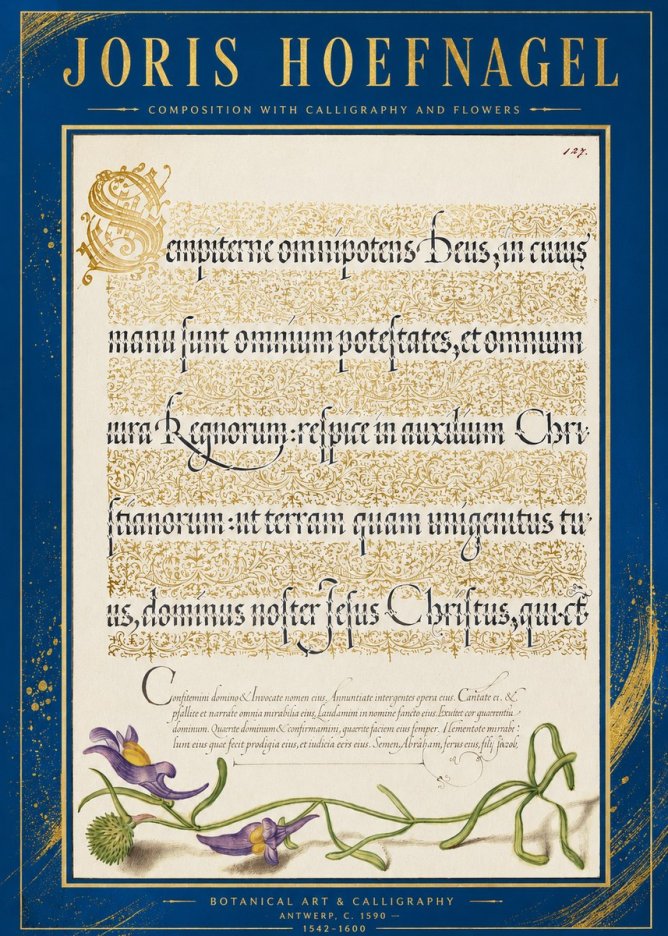 JORIS HOEFNAGEL
COMPOSITION WITH CALLIGRAPHY AND FLOWERS
127.
Sempiterne omnipotens Deus, in cuius
manu sunt omnium potestates, et omnium
iura Regnorum: respice in auxilium Chri-
stianorum: ut terram quam unigenitus tu-
us, dominus noster Jesus Christus, qui et
Confitemini domino & Invocate nomen eius, Annuntiate inter gentes opera eius. Cantate ei. &
psallite et narrate omnia mirabilia eius, Laudamini in nomine sancto eius. Exultet cor quaerentiu
dominum. Quaerite dominum & confirmamini, quaerite faciem eius semper. Mementote mirabi
lium eius quae fecit prodigia eius, et iudicia eius. Semen, Abraham, servus eius, filij Jacob,
BOTANICAL ART & CALLIGRAPHY
ANTWERP, C. 1590
1542–1600